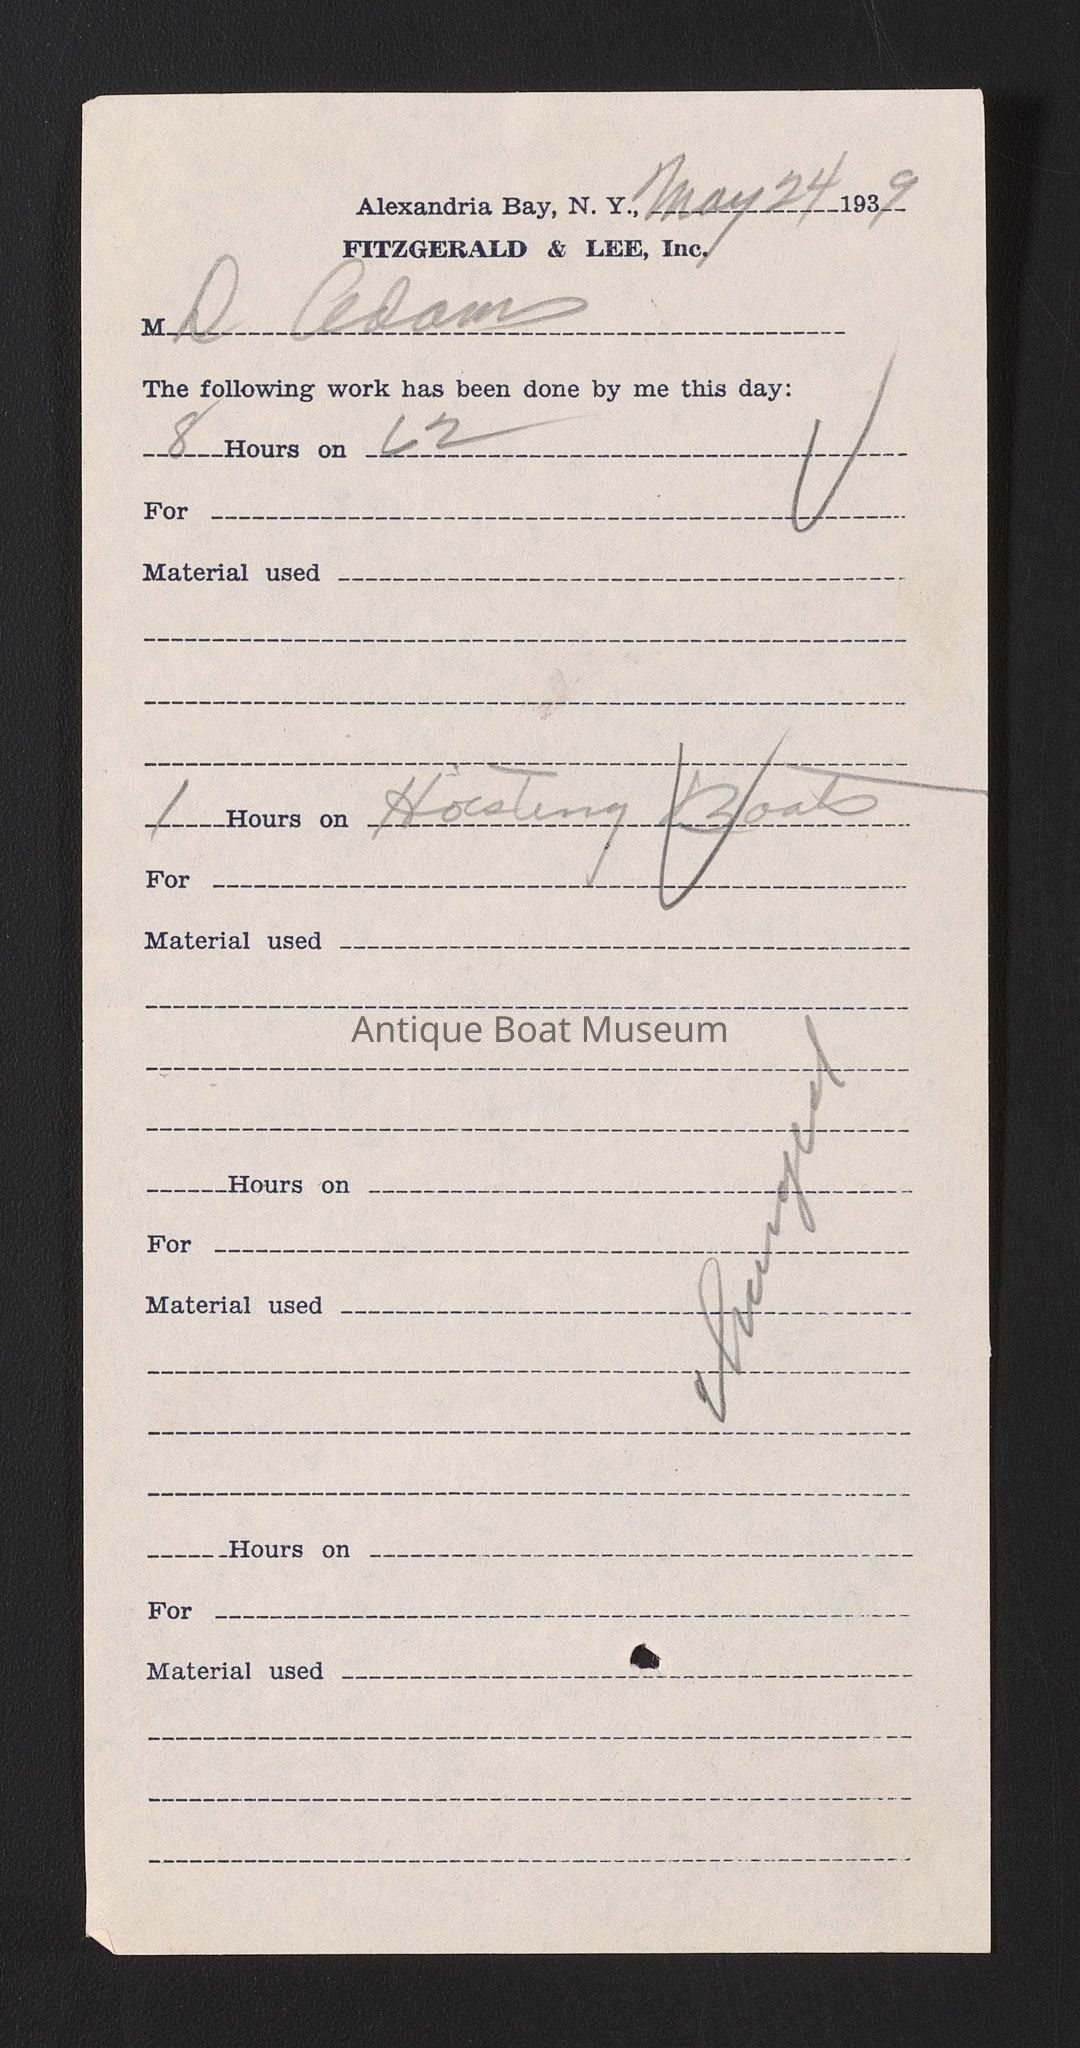 Alexandria Bay, N. Y., May 24 1939
FITZGERALD & LEE, Inc.
M D Adams
The following work has been done by me this day:
8 Hours on 62
For
Material used
1 Hours on Hoisting Boats
For
Material used
Antique Boat Museum
Hours on
For
Material used
Hours on
For
Material used